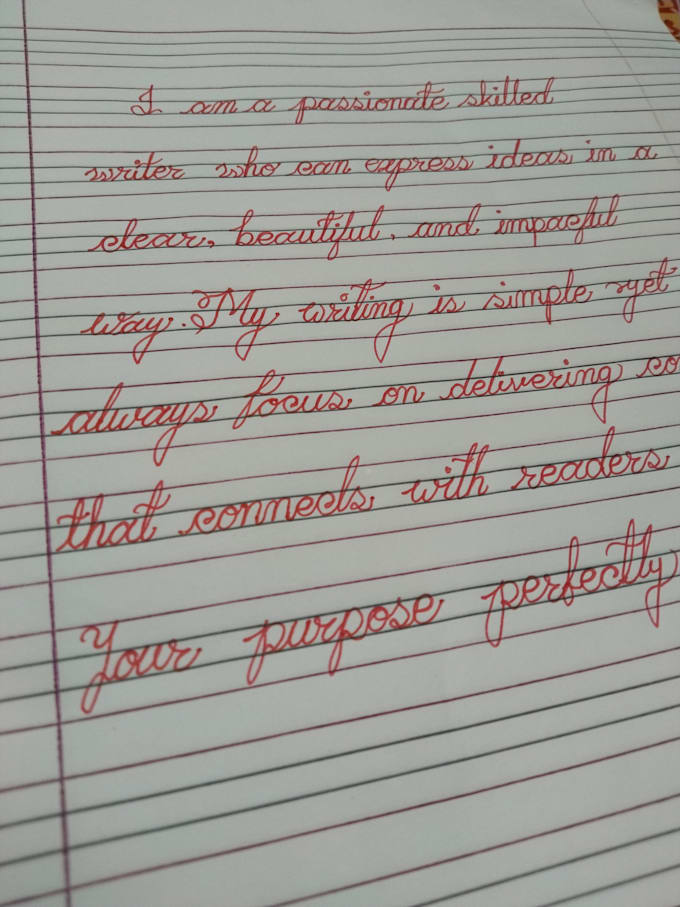 I am a passionate skilled
writer who can express ideas in a
clear, beautiful, and impacful
way. My writing is simple yet
always focus on delivering co
that connects with readers
Your purpose perfectly